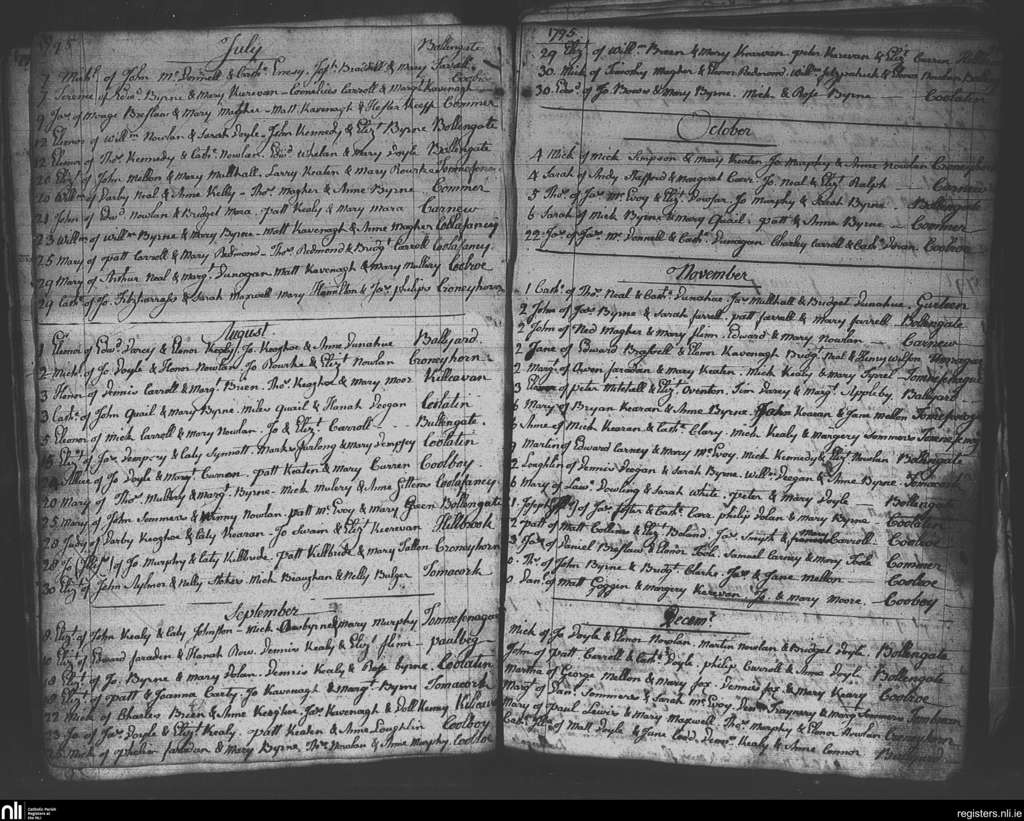 1795
July
Bollengate
7 Mich. of John Mc Donnell & Cath. Jos. & Mary Farrell
7 Terence of Edwd. Byrne & Mary Kurevan - Cornelius Carroll & Margt. Kavenagh Coolroe
9 Jas. of Morge Breslaw & Mary Maghar - Matt Kavenagh & Hester Keeff Commer
12 Elenor of Willm. Nowlan & Sarah Doyle - John Kennedy & Elizt. Byrne Bollengate
12 Elenor of Thos. Kennedy & Cath. Nowlan. Edwd. Whelan & Mary Doyle Bollengate
20 Elizt. of John Mellon & Mary Mullhall. Larry Keaten & Mary Rourke
20 Willm. of Darby Neal & Anne Kelly - Thos. Magher & Anne Byrne Commer
21 John of Edwd. Nowlan & Bridget Mara. Patt Kealy & Mary Mara Carnew
23 Willm. of Willm. Byrne & Mary Byrne - Matt Kavenagh & Anne Magher Coolafancy
25 Mary of Patt Carroll & Mary Redmond - Thos. Redmond & Bridgt. Carroll Coolafancy
29 Mary of Arthur Neal & Margt. Dunogan - Matt Kavenagh & Mary Mullery Coolroe
29 Cath. of Jo. Fitzharrass & Sarah Maxwell Mary Hamelton & Jas. Philips Croneyhorn
August
1 Elenor of Edwd. Darcy & Elenor Kealy. Jo. Keoghoe & Anne Dunahue Ballyard.
2 Mich. of Jo Doyle & Honor Nowlan. Jo Rourke & Elizt. Nowlan Croneyhorn
3 Honor of Dennis Carroll & Margt. Breen. Thos. Keoghoe & Mary Moor Killcavan
3 Cath. of John Quail & Mary Byrne. Miles Quail & Hanah Deegan Coolatin
5 Elenor of Mich Carroll & Mary Nowlan. Jo & Elizt. Carroll - Bullengate.
15 Elizt. of Jas. Dempsey & Caty Synnott. Marks Furlong & Mary Dempsey Coolatin
Allice of Jo Doyle & Margt. Curran. Patt Keaten & Mary Curren Coolboy.
20 Mary of Thos. Mullery & Margt. Byrne - Mich Mulery & Anne Coolafancy
25 Mary of John Sommers & Winny Nowlan. Patt Mc Evoy & Mary Breen Bollengate
28 Judy of Darby Keoghoe & Caty Kearan. Jo Swain & Elizt. Keerevan Hillbrook
28 Jo of Jo Murphy & Caty Killbride. Patt Killbride & Mary Fallon Croneyhorn
30 Elizt. of John Aylmor & Nelly Stokes. Mich Braughan & Nelly Bulger Tomacork
September
8 Elizt. of John Kealy & Caty Johnston - Mich Byrne & Mary Murphy Tonnefenagen
10 Elizt. of Edward Faraden & Hanah Row. Dennis Kealy & Elizt. Flinn - Paulbeg
18 Elizt. of Jo. Byrne & Mary Dolan. Dennis Kealy & Ross Byrne. Coolatin
18 Elizt. of Patt & Joanna Carty. Jo Kavenagh & Margt. Byrne Tomacork
22 Mich of Charles Breen & Anne Keoghoe. Jas. Kavenagh & Doll Kenny
23 Jo of Jas. Doyle & Elizt. Kealy. Patt Keaten & Anne Loughlin Coolboy
Mich of Faraden & Mary Byrne. Thos. Nowlan & Anne Murphy. Coolroe
1795.
29 Elizt. of Willm. Breen & Mary Kearevan. Peter Karevan & Elizt. Curren
30. Mich of Timothy Magher & Elenor Redmond. Willm. Fitzpatrick & Elenor Nowlan
30. Edwd. of Jo Brow & Mary Byrne. Mich & Ross Byrne. Coolatin
October
4 Mich of Mich Simpson & Mary Keaten. Jo Murphy & Anne Nowlan Croneyhorn
4 Sarah of Andy Stafford & Margaret Carr. Jo. Neal & Elizt. Ralph - Carnew
5 Thos. of Jas. Mc Evoy & Elizt. Jo Murphy & Sarah Byrne. Bollengate
6 Sarah of Mich Byrne & Mary Quail. Patt & Anne Byrne - Commer
22 Jas. of Jas. Mc Donnell & Cath. Dunagan Charley Carroll & Cath. Doran. Coolroe
November
1 Cath. of Thos. Neal & Cath. Dunahue. Jas. Mullhall & Bridget Dunahue.
2 John of Jas. Byrne & Sarah Farrell. Patt Farrell & Mary Farrell Bollengate
2 John of Ned Magher & Mary Flinn. Edward & Mary Nowlan - Carnew
2 Jane of Edward Braswell & Elenor Kavenagh Bridgt. Neal & Henry Wilson
2 Margt. of Owen Faradan & Mary Keaten. Mich Kealy & Mary
3 Elenor of Peter Mitchell & Elizt. Overton. Tim Darcy & Margt. Appleby. Ballyard
6 Mary of Bryan Kearan & Anne Byrne. John Kearan & Jane Mellon
6 Anne of Mich Kearan & Cath. Clary. Mich Kealy & Margery Sommers
9 Martin of Edward Carney & Mary Mc Evoy. Mich Kennedy & Elizt. Nowlan Bollengate
2 Loughlin of Dennis Deegan & Sarah Byrne. Willm. Deegan & Anne Byrne. Tomacork
6 Mary of Lawce. Dowling & Sarah White. Peter & Mary Doyle - Bollengate
1. Joseph of Jas. Foster & Cath. Carr. Philip Dolan & Mary Byrne Coolatin
2 Patt of Matt & Elizt. Boland. Jas. Smyth & Mary Carroll. Coolroe
3. Jas. of Daniel Breslaw & Elenor Fool. Samuel Carney & Mary Fool Commer
0. Thos. of John Byrne & Bridgt. Clarke. Jas. & Jane Mellon - Coolroe
0 Dan. of Matt Goggin & Margery Kerevan. Jo. & Mary Moore. Coolboy
Decemr.
Mich of Jo Doyle & Elenor Nowlan Martin Nowlan & Bridget Doyle. Bollengate
John of Patt. Carroll & Cath. Doyle. Philip Carroll & Anna Doyle Bollengate
Martha of George Mellon & Mary Fox. Dennis Fox & Mary Keary Coolroe
Margt. of Danl. Sommers & Sarah Mc Evoy. & Margt. Sommers
Mary of Paul Lewis & Mary Maxwell. Thos. Murphy & Elenor Nowlan Croneyhorn
Cath. of Matt Doyle & Jane Codd. Dennis Kealy & Anne Connor
nli
Catholic Parish
Registers at
the NLI
registers.nli.ie